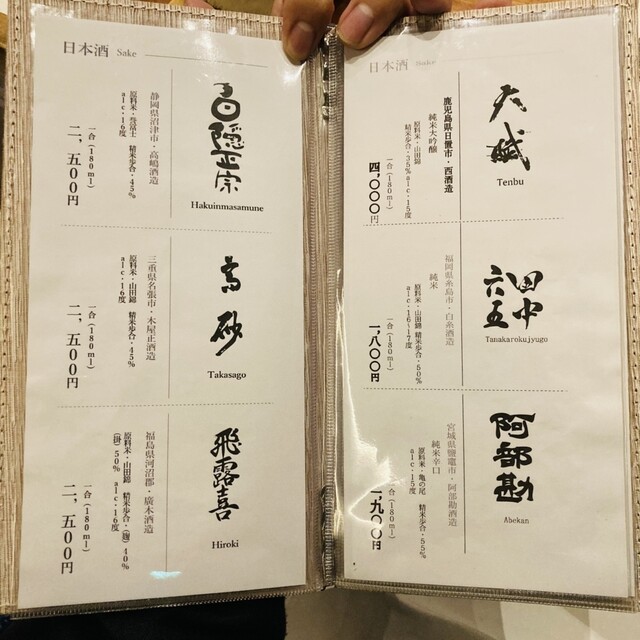 日本酒 Sake
白隠正宗
Hakuinmasamune
静岡県沼津市・高嶋酒造
原料米・誉富士 精米歩合・45%
alc・16度
一合(180ml)
二、五〇〇円
高砂
Takasago
三重県名張市・木屋正酒造
原料米・山田錦 精米歩合・45%
alc・16度
一合(180ml)
二、五〇〇円
飛露喜
Hiroki
福島県河沼郡・廣木酒造
原料米・山田錦 精米歩合・(麹)40%
(掛)50% alc・16度
一合(180ml)
二、五〇〇円
日本酒 Sake
天賦
Tenbu
鹿児島県日置市・西酒造
純米大吟醸
原料米・山田錦 精米歩合・35%
alc・15度
一合(180ml)
四、〇〇〇円
田中
六五
Tanakarokujyugo
福岡県糸島市・白糸酒造
純米
原料米・山田錦 精米歩合・50%
alc・16~17度
一合(180ml)
一、八〇〇円
阿部勘
Abekan
宮城県鹽竈市・阿部勘酒造
純米辛口
原料米・亀の尾 精米歩合・55%
alc・15度
一合(180ml)
一、九〇〇円